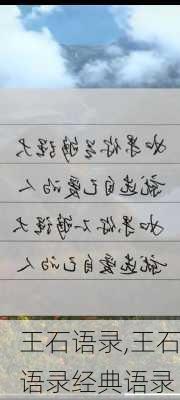 如果你足够强大
就选自己爱的人
如果你不够强大
就选爱自己的人
王石语录,王石
语录经典语录